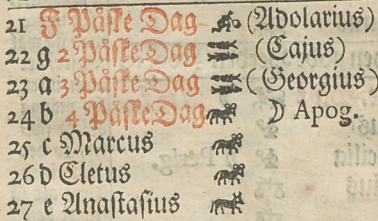 21 F Påske Dag (Adolarius)
22 g 2 PåskeDag (Cajus)
23 a 3 PåskeDag (Georgius)
24 b 4 PåskeDag ☽ Apog.
25 c Marcus
26 d Cletus
27 e Anastasius